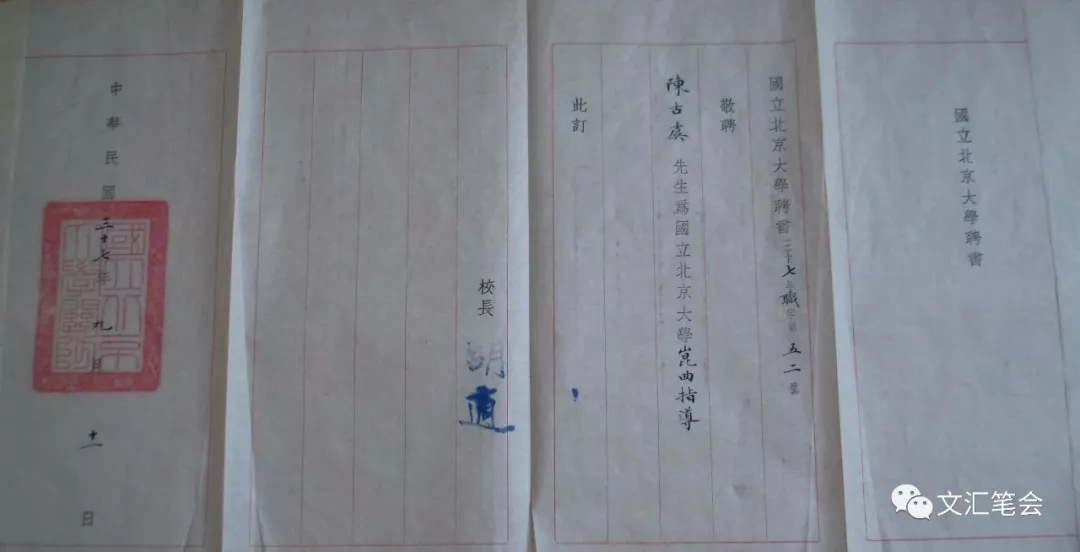 國立北京大學聘書
國立北京大學聘書三十七年職字第五二號
敬聘
陳古虞先生爲國立北京大學崑曲指導
此訂
校長 胡適
中華民國三十七年九月十一日
國立北京大學關防
文汇笔会